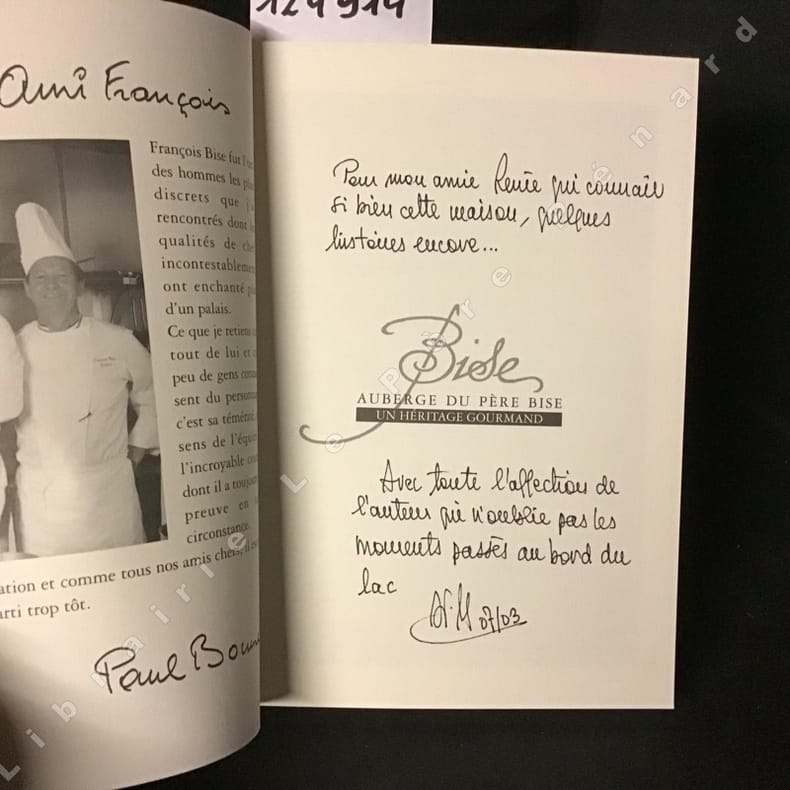 124914
Ami François
François Bise fut l'u
des hommes les pl
discrets que j'a
rencontrés dont
qualités de che
incontestablemen
ont enchanté p
d'un palais.
Ce que je retiens
tout de lui et
peu de gens conn
sent du personn
c'est sa témérité
sens de l'équi
l'incroyable cou
dont il a toujou
preuve en
circonstance.
ation et comme tous nos amis chefs, il es
arti trop tôt.
Paul Bocu
Pour mon amie Renée qui connaît
si bien cette maison, quelques
histoires encore...
Bise
AUBERGE DU PÈRE BISE
UN HÉRITAGE GOURMAND
Avec toute l'affection de
l'auteur qui n'oublie pas les
moments passés au bord du
lac
07/03
Librairie Le Père Pénard